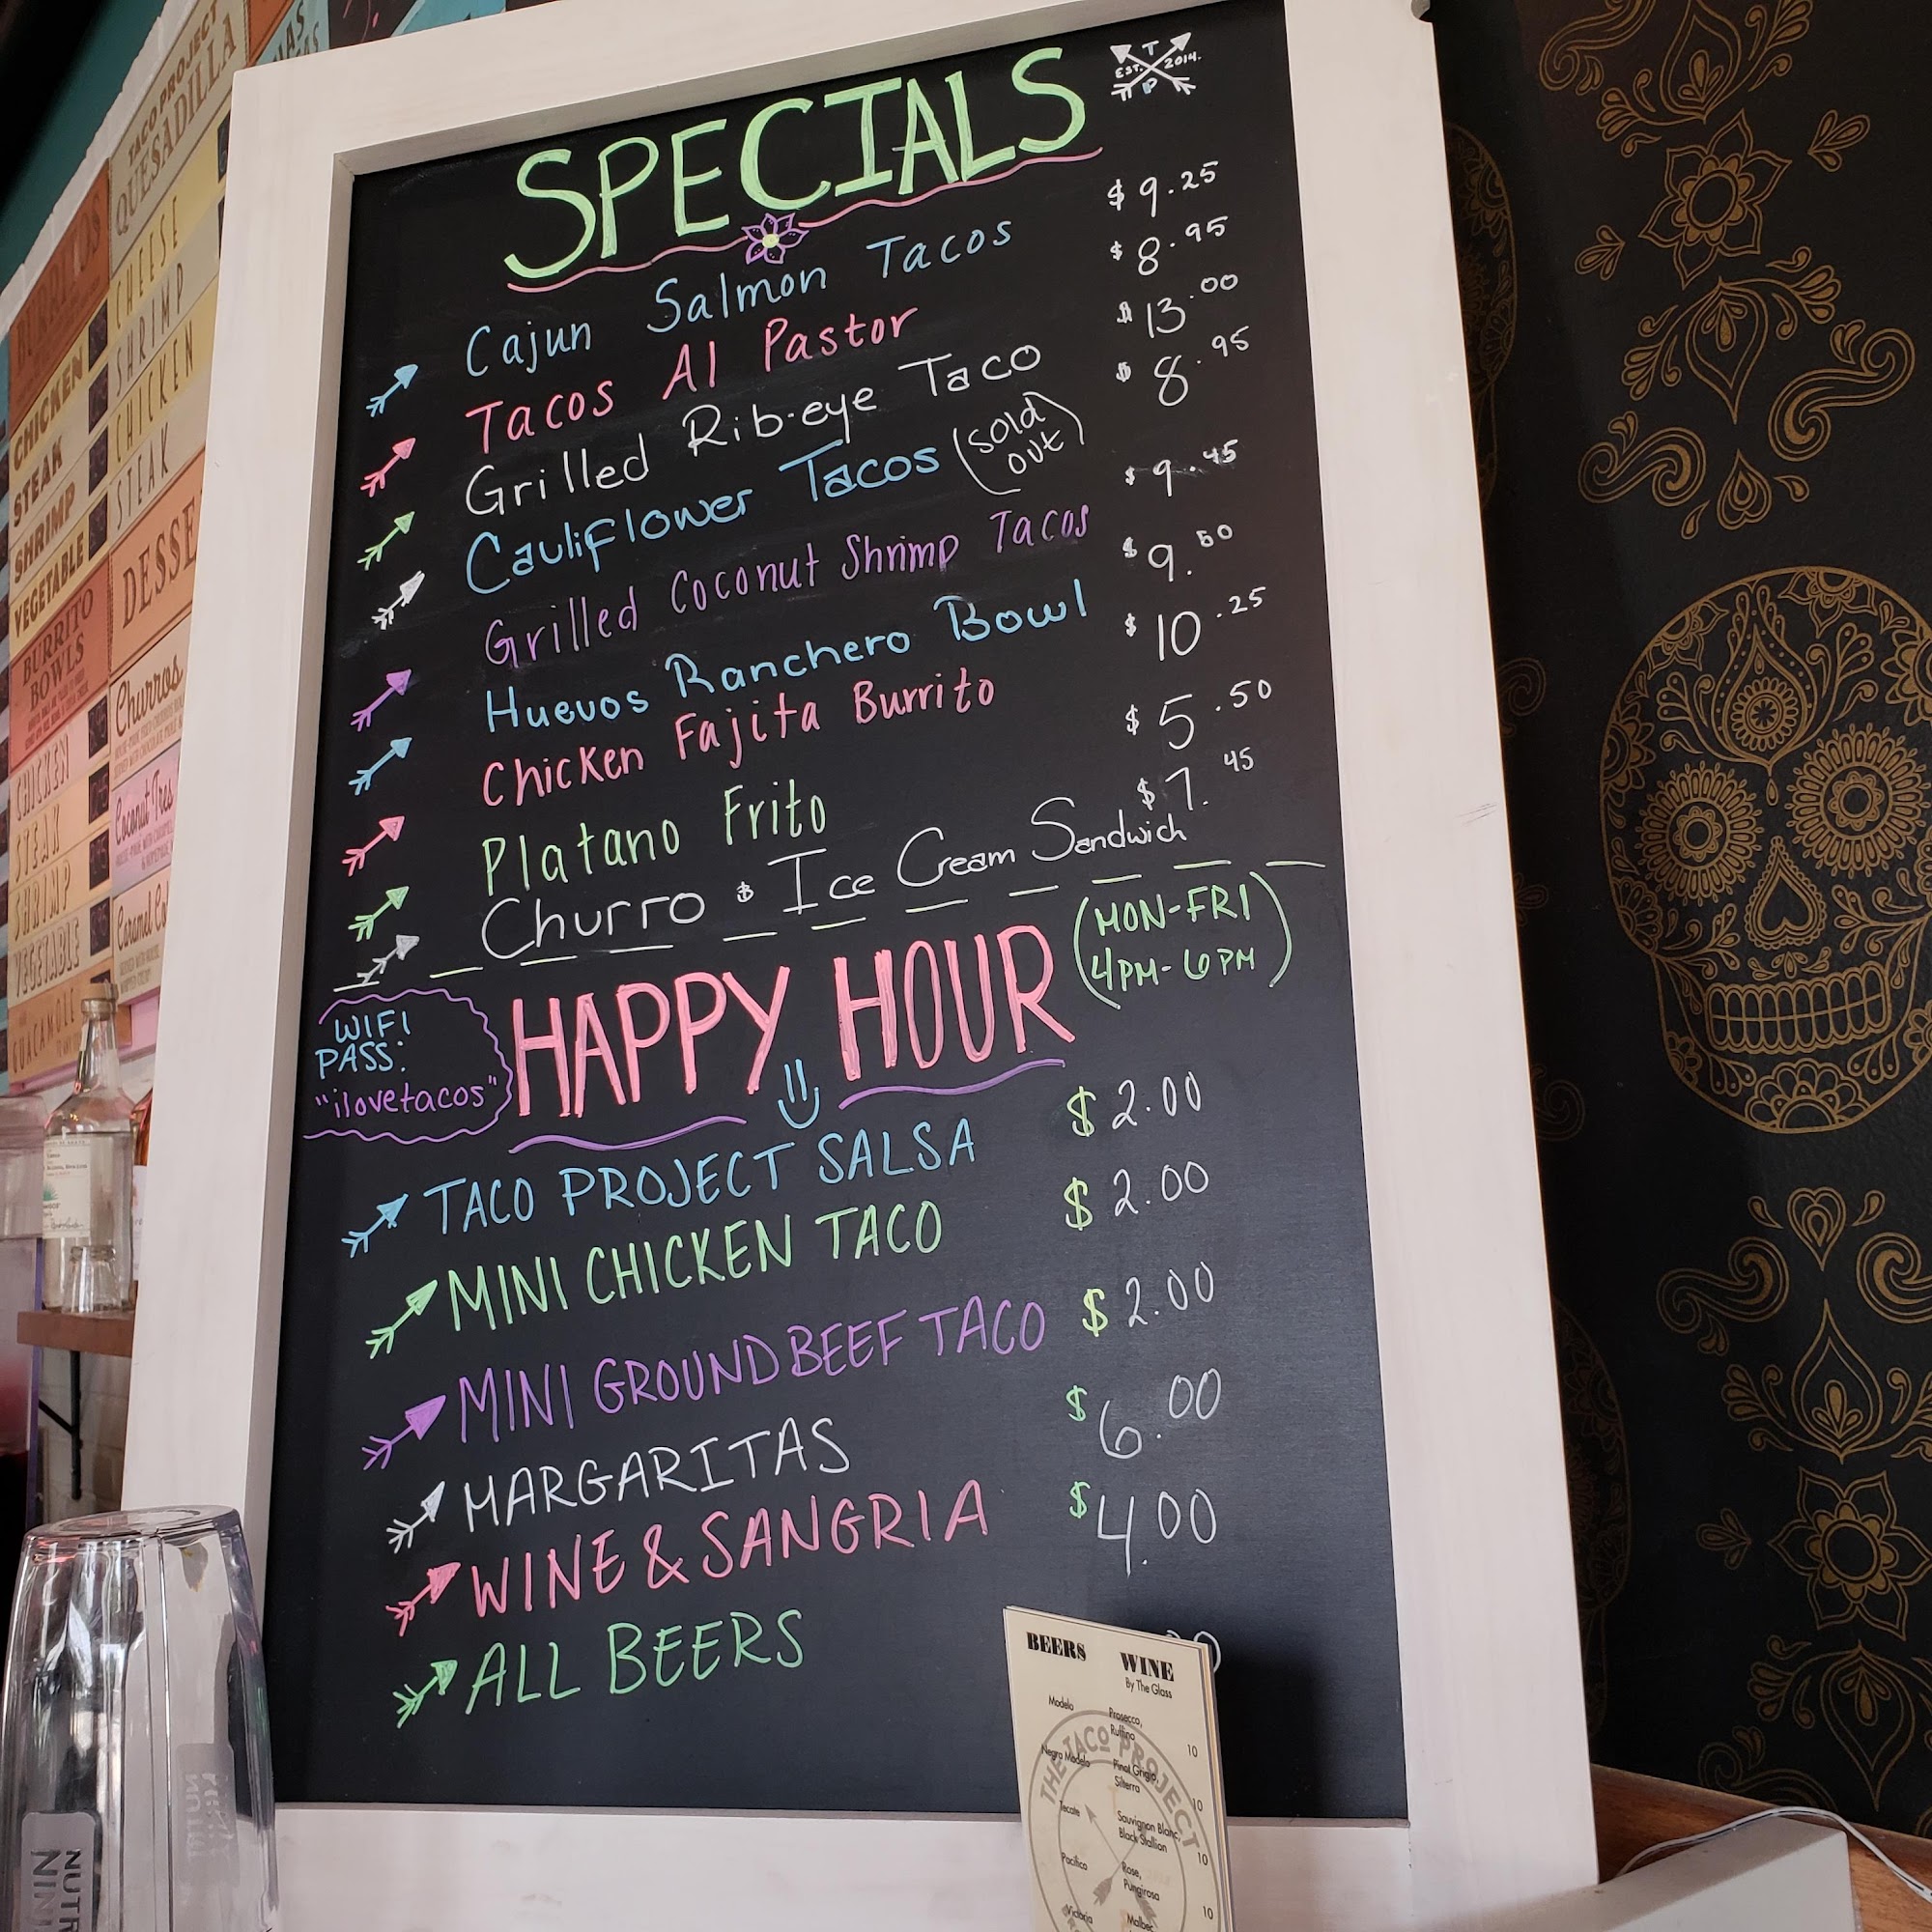 SPECIALS
T
EST. 2014.
P
Cajun Salmon Tacos $9.25
Tacos Al Pastor $8.95
Grilled Rib-eye Taco $13.00
Cauliflower Tacos (sold out) $8.95
Grilled Coconut Shrimp Tacos $9.45
Huevos Ranchero Bowl $9.50
Chicken Fajita Burrito $10.25
Platano Frito $5.50
Churro & Ice Cream Sandwich $7.45
HAPPY HOUR
(MON-FRI
4PM-6PM)
WIFI
PASS:
"ilovetacos"
TACO PROJECT SALSA $2.00
MINI CHICKEN TACO $2.00
MINI GROUND BEEF TACO $2.00
MARGARITAS $6.00
WINE & SANGRIA $4.00
ALL BEERS
BEERS
WINE
By The Glass
Modelo
Prosecco,
Ruffino 10
Negra Modelo
Pinot Grigio,
10
Tecate
Sauvignon Blanc,
Black Stallion 10
Pacifico
Rose,
10
Victoria
Malbec
THE TACO PROJECT
TACO PROJECT
QUESADILLA
CHEESE
SHRIMP
CHICKEN
STEAK
CHICKEN
STEAK
SHRIMP
VEGETABLE
BURRITO
BOWLS
CHICKEN
STEAK
SHRIMP
VEGETABLE
GUACAMOLE
Churros
Coconut Tres